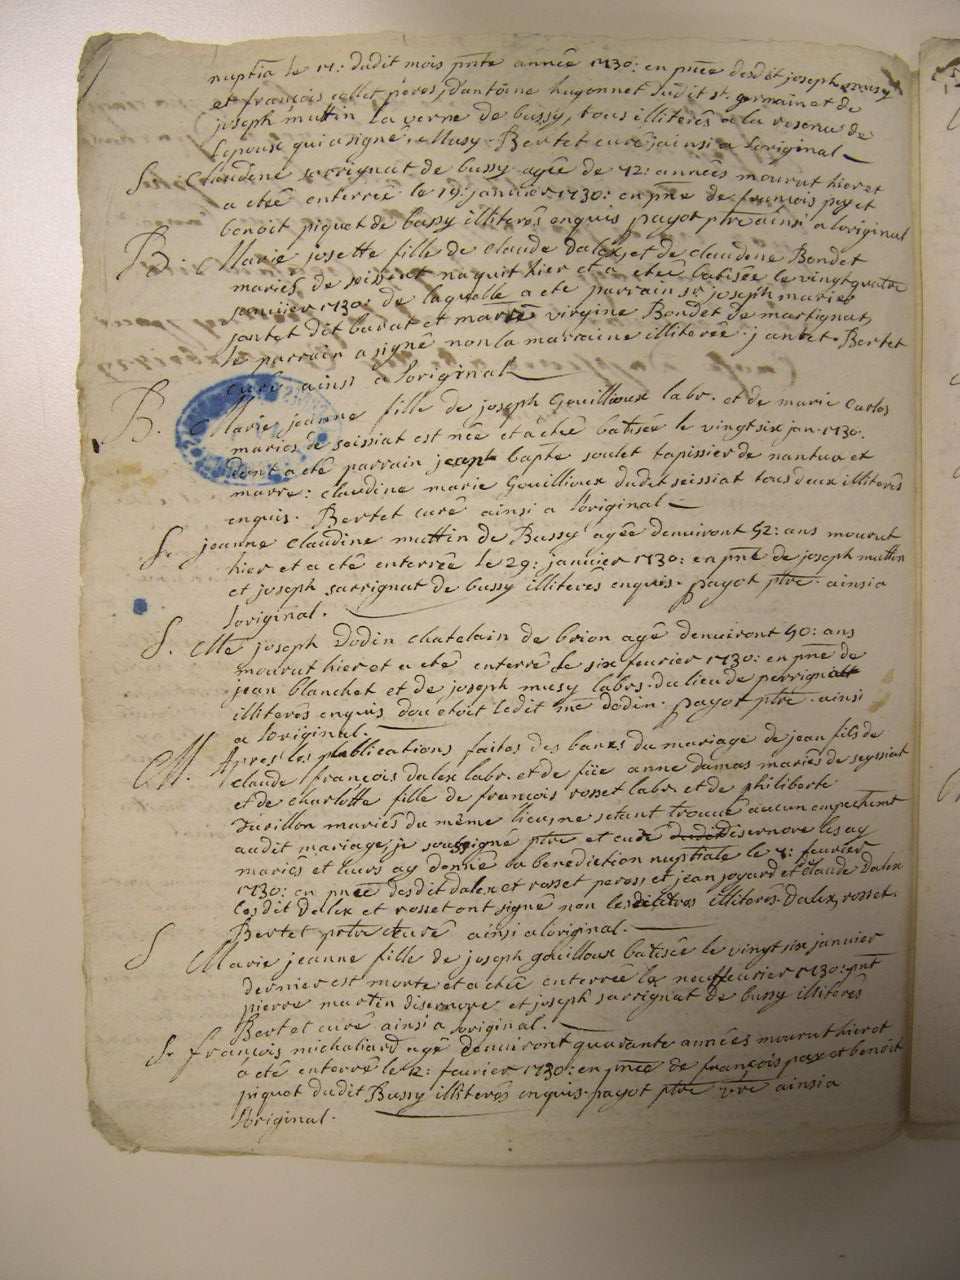 nuptia le 17: dudit mois pnte année 1730: en pñce desdet joseph musy
et françois collet peres, dantoine hugonnet dudit st. germain et de
joseph muttin la verne de bussy, tous illiterés a la reserue de
lepouse qui a signé, Musy. Bertet curé ainsi a loriginal
S. Claudine sarrignat de bussy agée de 72: années mourut hier et
a eteé enterreé le 19: januier 1730: en pñe de françois pey et
benoit piquet de bussy illiterés enquis payot ptre ainsi a loriginal
B. Marie josette fille de claude dalex, et de claudine Bondet
mariés de naquit hier et a eteé batisée le vingt quatre
januier 1730: de laquelle a eté parrain sr joseph marie
jantet dit barat et marre virgine Bondet de martignat,
le parrain a signé non la marraine illiterée. jantet. Bertet
curé ainsi a loriginal
B. Marie jeanne fille de joseph Gouilloux labr. et de marie carlos
mariés de seissiat est née et a eteé batisée le vingt six jan. 1730.
dont a eté parrain jean bapte soulet tapissier de nantua et
marre: claudine marie Gouillioux dudit seissiat tous deux illiterés
enquis. Bertet curé ainsi a loriginal
S. jeanne claudine muttin de Bussy agée denuiront 52: ans mourut
hier et a eté enterrée le 29: januier 1730: en pñe de joseph muttin
et joseph sarrignat de bussy illiteres enquis. payot ptre. ainsi a
loriginal.
S. Me joseph Dodin chatelain de brion agé denuiront 50: ans
mourut hier et a eté enterré le six feurier 1730: en pñe de
jean blanchet et de joseph musy labrs. du lieu de perrignat
illiterés enquis dou etoit ledit me dodin. payot ptre. ainsi
a loriginal.
M. Apres les publications faites des bancs du mariage de jean fils de
claude françois dalex labr. et de füe anne damas mariés de seyssiat
et de charlotte fille de françois rosset labr. et de philiberte
Dusillon mariés du même lieu, ne setant trouué aucun empechemt
audit mariage, je soussigné ptre et curé dudit disernore les ay
mariés et leurs ay donné la benediction nuptiale le 7: feurier
1730: en pnce desdit dalex et rosset peres, et jean joyard et claude Dalex
lesdit Dalex et rosset ont signé non les dautres illiterés. Dalex, rosset.
Bertet ptre curé ainsi a loriginal.
S Marie jeanne fille de joseph gouilloux batisée le vingt six januier
dernier est morte et a eteé enterrée le neuf feurier 1730: pnt
pierre martin disernore et joseph sarrignat de bussy illiterés
Bertet curé ainsi a loriginal.
S. françois michaliard agé denuiront quarante années mourut hier et
a eté enterré le 12: feurier 1730: en pnce de françois pey et benoit
piquet dudit Bussy illiterés enquis. payot ptre vre ainsi a
loriginal.